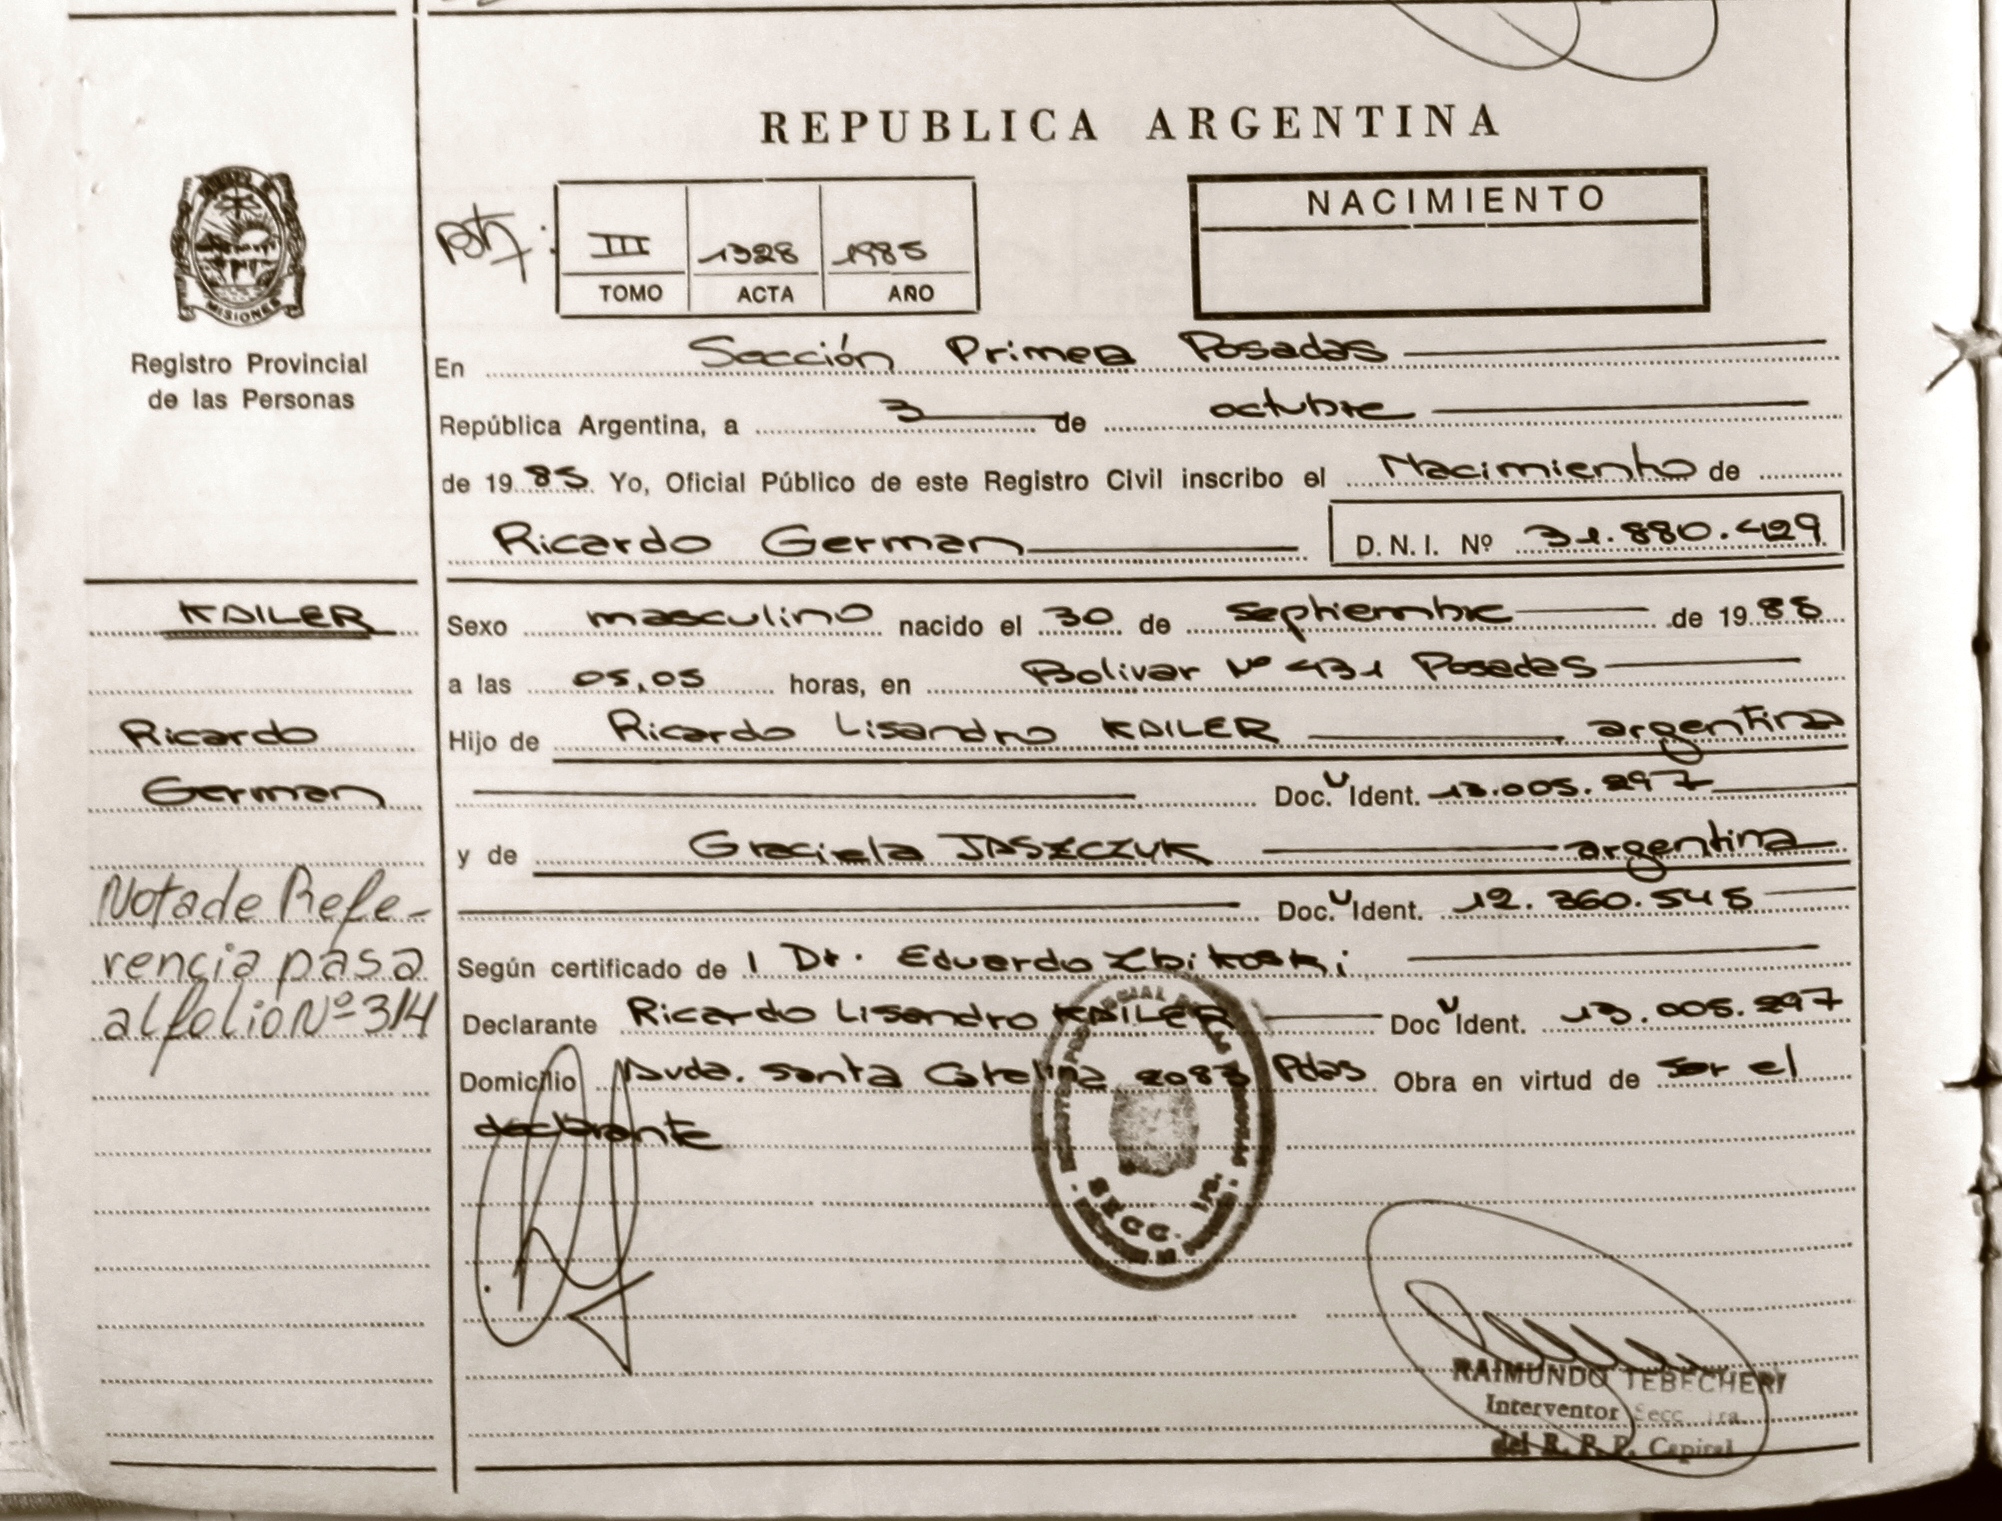 REPUBLICA ARGENTINA
MISIONES
Registro Provincial
de las Personas
III 1328 1985
TOMO ACTA AÑO
NACIMIENTO
En Sección Primera Posadas
República Argentina, a 3 de octubre
de 1985 Yo, Oficial Público de este Registro Civil inscribo el Nacimiento de
Ricardo German D. N. I. Nº 31.880.429
KAILER
Ricardo
German
Nota de Refe-
rencia pasa
al folio Nº 314
Sexo masculino nacido el 30 de septiembre de 1985
a las 05,05 horas, en Bolivar Nº 431 Posadas
Hijo de Ricardo Lisandro KAILER argentina
Doc. U Ident. 13.005.297
y de Graciela JASZCZUK argentina
Doc. U Ident. 12.360.545
Según certificado de l Dr. Eduardo Zbikoski
Declarante Ricardo Lisandro KAILER Doc U Ident. 13.005.297
Domicilio Avda. Santa Catalina 2083 Pdas Obra en virtud de ser el
declarante
SECC. 1ra.
RAIMUNDO TEBECHERI
Interventor Secc. 1ra.
del R. P. P. Capital